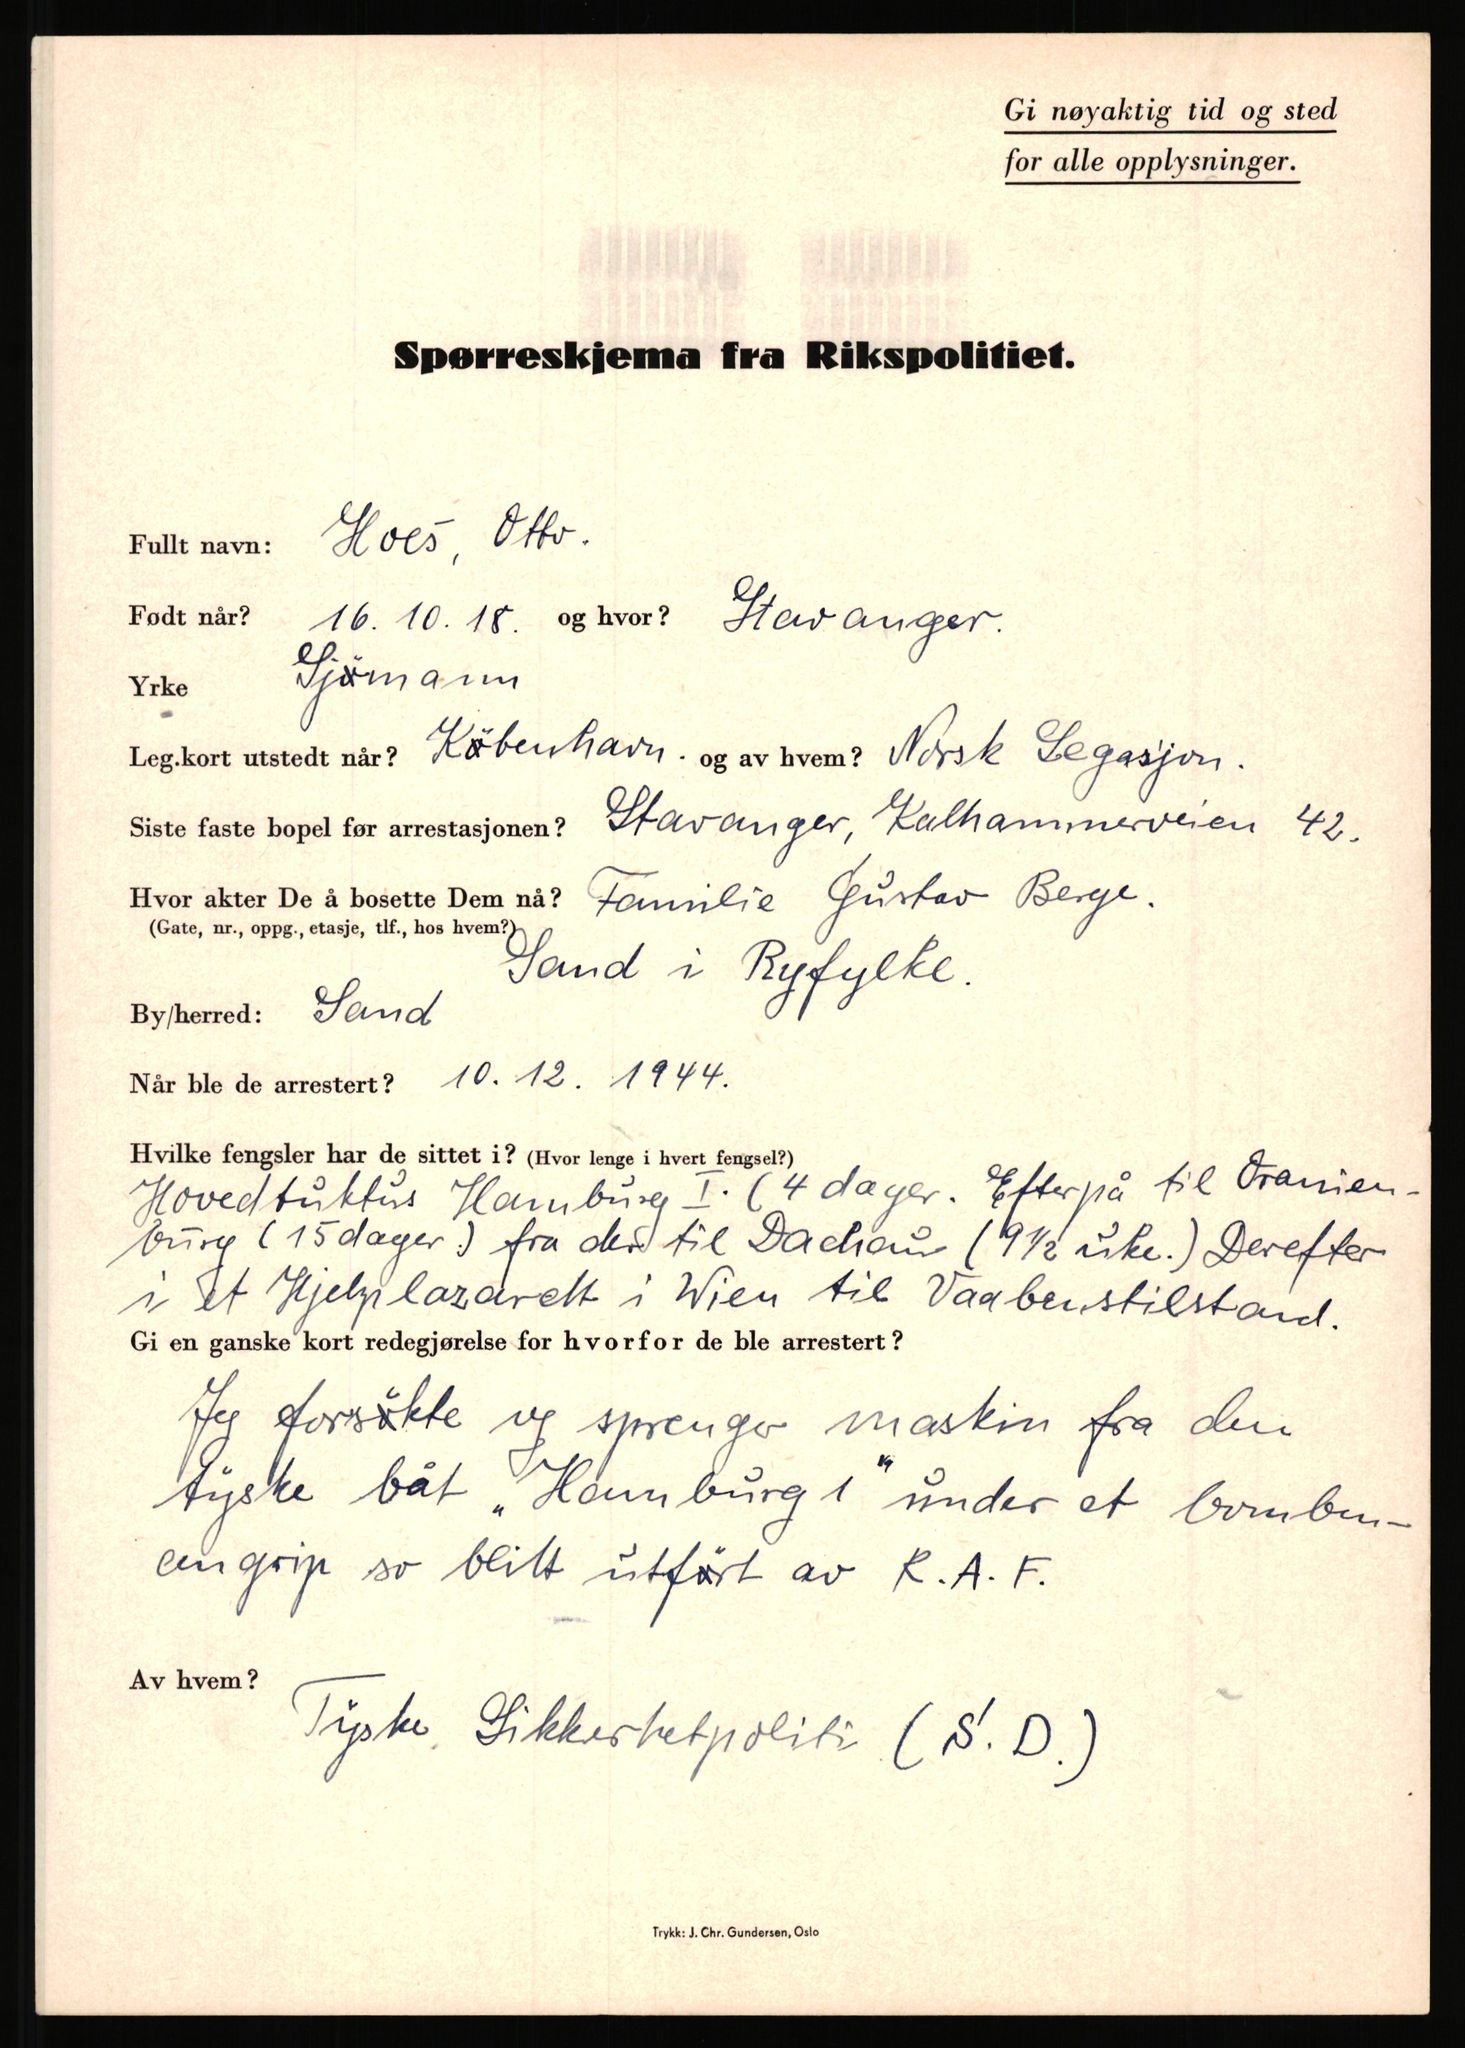 Gi nøyaktig tid og sted
for alle opplysninger.
Spørreskjema fra Rikspolitiet.
Fullt navn: Hoes, Otto.
Født når? 16. 10. 18. og hvor? Stavanger.
Yrke Sjømann
Leg.kort utstedt når? København. og av hvem? Norsk Legasjon.
Siste faste bopel før arrestasjonen? Stavanger, Kalhammerveien 42.
Hvor akter De å bosette Dem nå? Familie Gustav Berge.
(Gate, nr., oppg., etasje, tlf., hos hvem?)
Sand i Ryfylke.
By/herred: Sand
Når ble de arrestert? 10. 12. 1944.
Hvilke fengsler har de sittet i? (Hvor lenge i hvert fengsel?)
Hovedtuktus Hamburg I. (4 dager. Efterpå til Oranien-
burg (15 dager.) fra der til Dachau (9 1/2 uke.) Derefter
i et Hjelplazarett i Wien til Vaabenstilstand.
Gi en ganske kort redegjørelse for hvorfor de ble arrestert?
Jeg forsøkte og sprenger maskin fra den
tyske båt „Hamburg 1" under et bomben-
angrip so blitt utført av R.A.F.
Av hvem? Tyske Sikkerhetpoliti (S.D.)
Trykk: J. Chr. Gundersen, Oslo